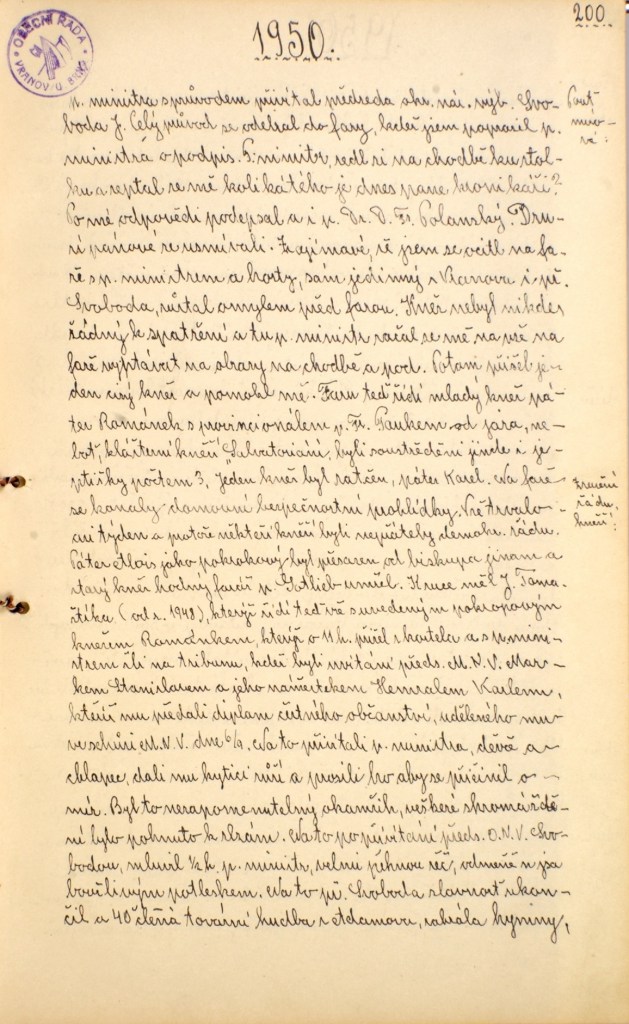 200.
OBECNÍ RADA
VRANOV U BRNA
1950.
p. ministra s průvodem přivítal předseda okr. nár. výb. Svo-
boda J. Celý průvod se odebral do fary, kdež jsem poprosil p.
ministra o podpis. P. ministr, sedl si na chodbě ku stol-
ku a zeptal se mě kolikátého je dnes pane kronikáři?
Po mé odpovědi podepsal a i p. Dr. D. Fr. Polanský. Dru-
zí pánové se usmívali. Zajímavé, že jsem se ocitl na fa-
ře s p. ministrem a hosty, sám jediný z Vranova i př.
Svoboda, zůstal omylem před farou. Kněz nebyl nikdež
řádný k spatření a tu p. ministr začal se mě na vše na
faře vyptávat na obrazy na chodbě a pod. Potom přišel je-
den cizý kněz a pomohl mě. Faru teď řídí mladý kněz pá-
ter Románek s provincionálem p. Fr. Paukem od jara, ne-
boť, klášterní kněží „Salvatoriáni, byli soustředěni jinde i je-
ptišky počtem 3. Jeden kněz byl zatčen, páter Karel. Na faře
se konaly domovní bezpečnostní prohlídky. Vše trvalo
ani týden a protože někteří kněží byli nepřátely demokr. řádu.
Páter Alois jako pokrokový byl přesazen od biskupa jinam a
starý kněz hodný farář p. Gotlieb umřel. Kruce měl J. Toma-
štíka (od r. 1948), kterýž řídí teď vše s uvedeným pokrokovým
knězem Románkem, kterýž o 11 h. přišel z kostela a s p. mini-
strem šli na tribunu, kdež byli uvítáni předs. M.N.V. Mar-
kem Stanislavem a jeho náměstkem Henzalem Karlem,
kteříž mu předali diplom čestného občanství, uděleného mu
ve schůzi M.N.V. dne 6/9. Na to přivítali p. ministra, děvče a
chlapec, dali mu kytici růží a prosili ho aby se přičinil o
mír. Byl to nezapomenutelný okamžik, veškeré shromáždě-
ní bylo pohnuto k slzám. Na to po přivítání předs. O.N.V. Svo-
bodou, mluvil ½ h. p. ministr, velmi pěknou řeč, odměněn jsa
bouřlivým potleskem. Na to př. Svoboda slavnost ukon-
čil a 40 členná tovární hudba z Adamova, zahrála hymny,
Pouť
míro-
vá:
Zrušení
řádu
kněží: